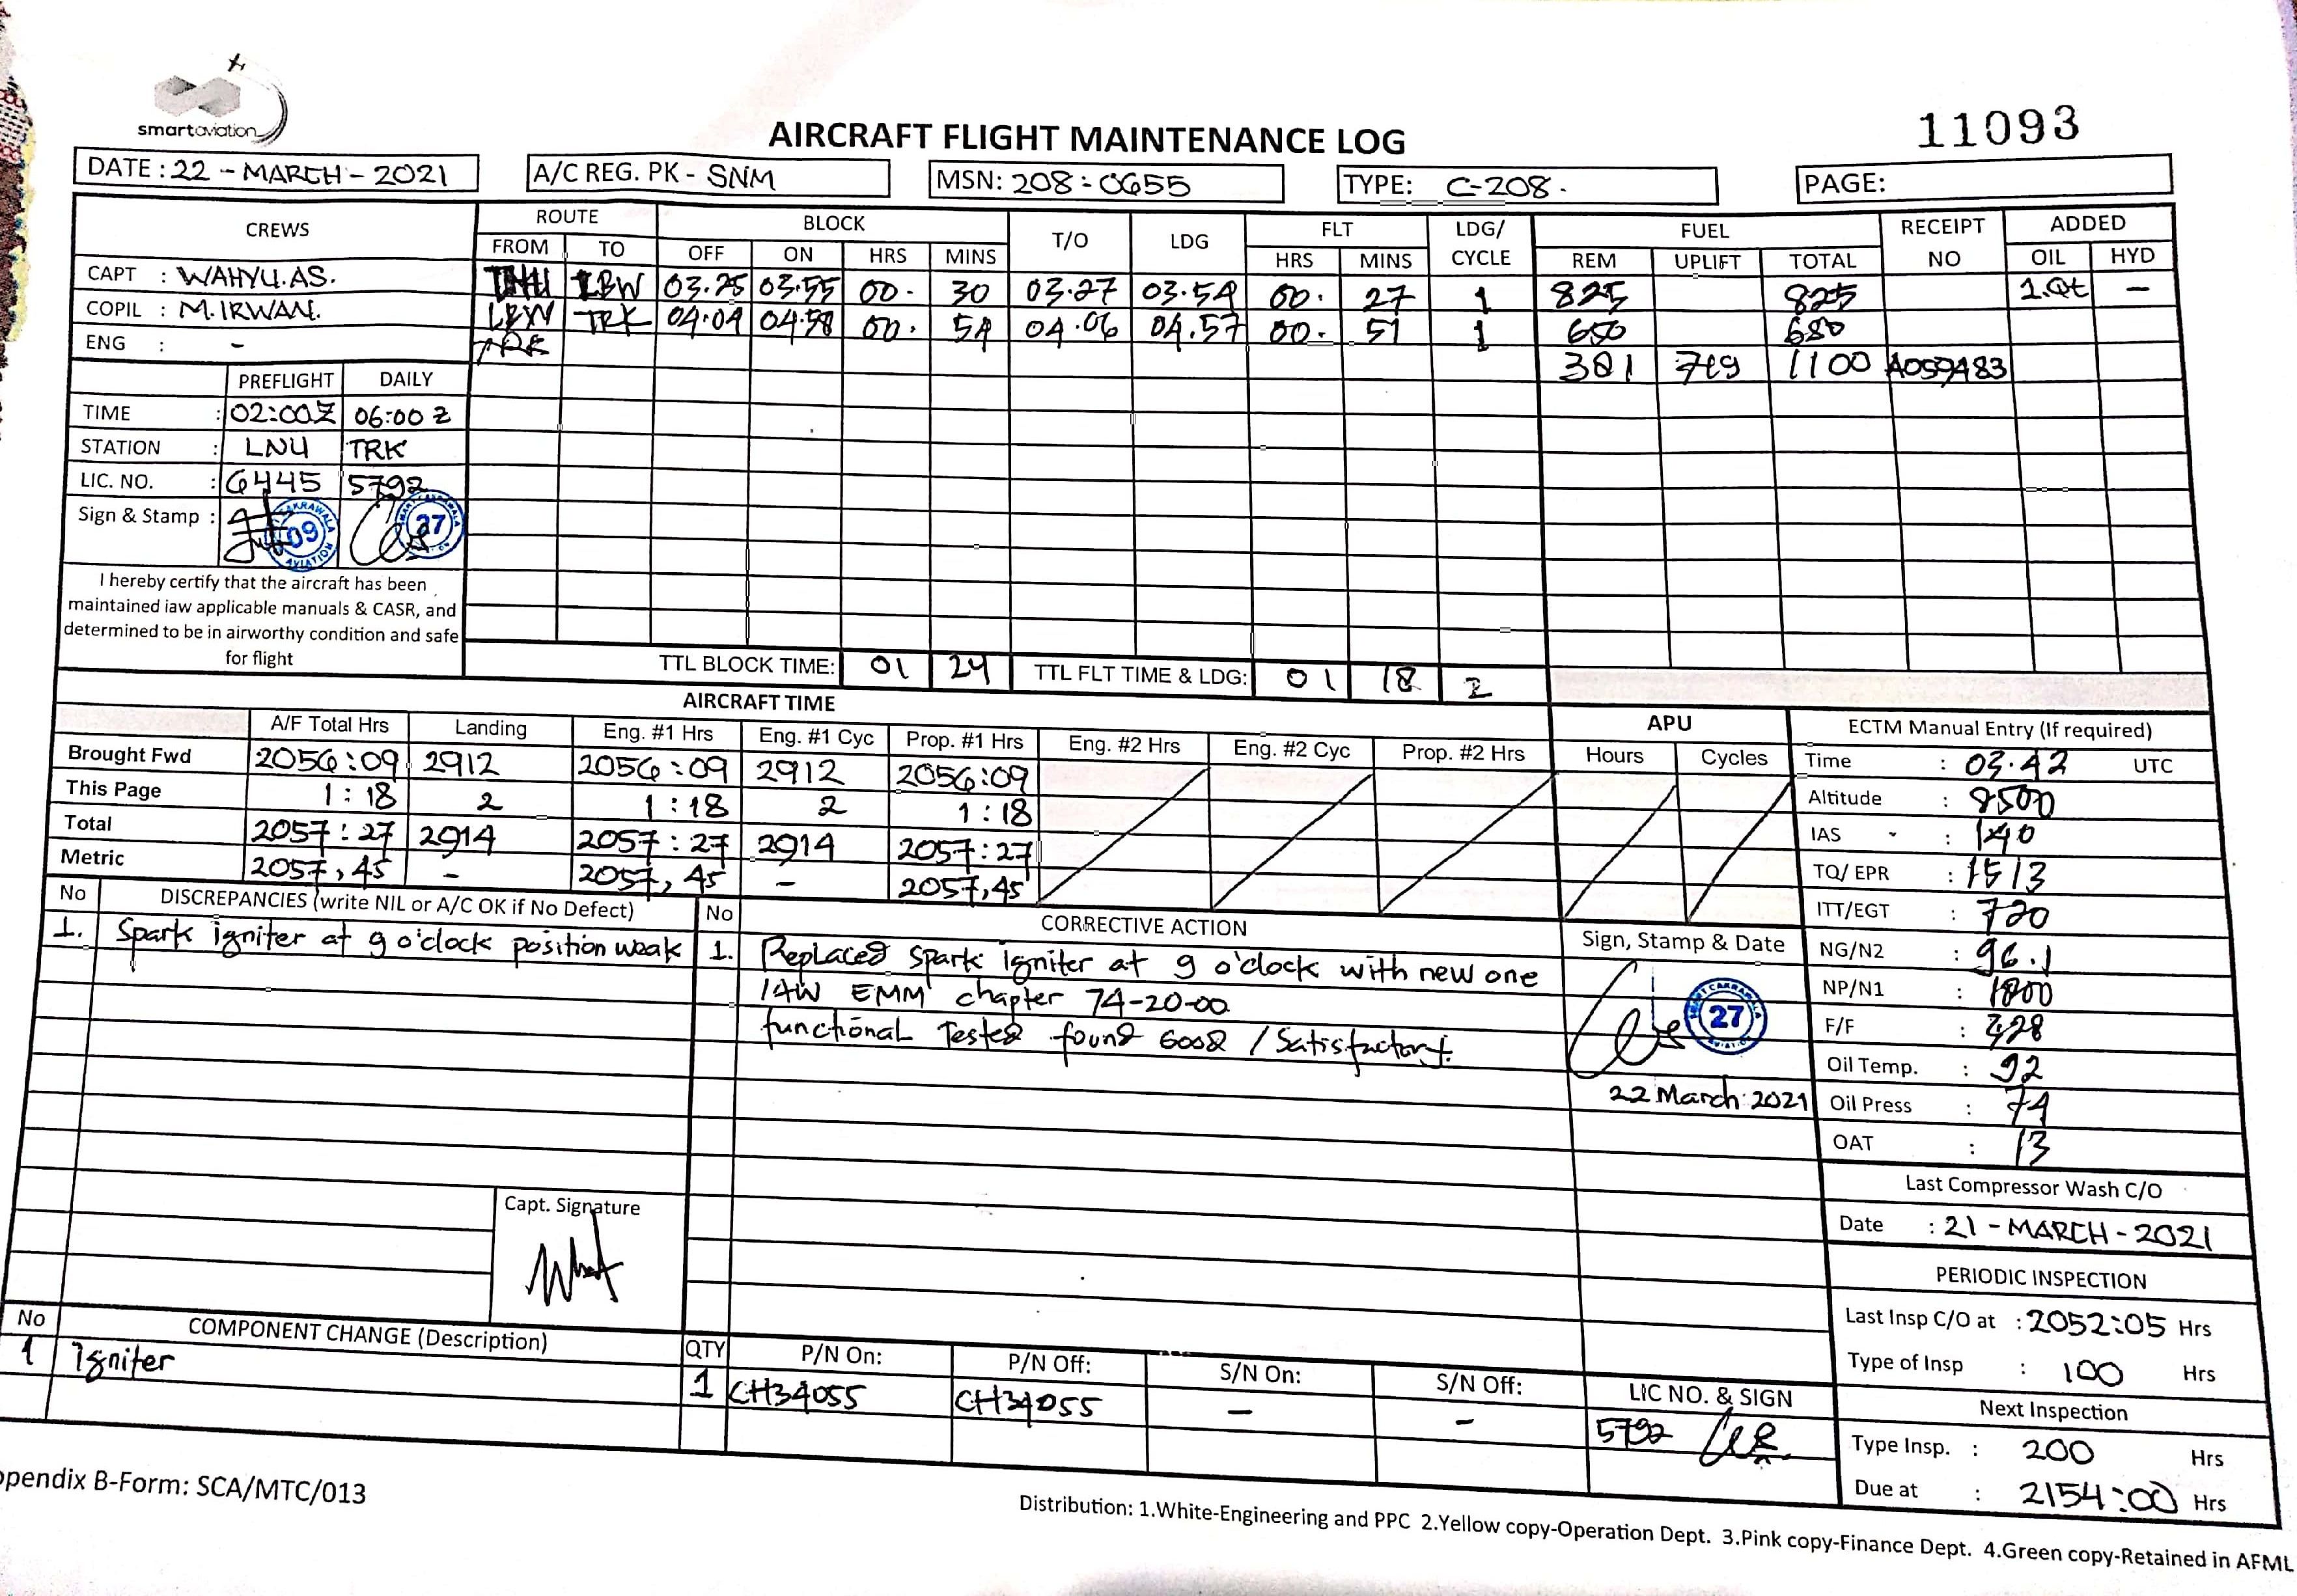 smartaviation
11093
AIRCRAFT FLIGHT MAINTENANCE LOG
DATE : 22 - MARCH - 2021 A/C REG. PK - SNM MSN: 208-0655 TYPE: C-208. PAGE:
CREWS ROUTE BLOCK T/O LDG FLT LDG/ CYCLE FUEL RECEIPT NO ADDED
FROM TO OFF ON HRS MINS HRS MINS REM UPLIFT TOTAL OIL HYD
CAPT : WAHYU.AS. LBW 03.25 03.55 00. 30 03.27 03.54 00. 27 1 825 825 1.Qt -
COPIL : M.IRWAN. LBW TRK 04:04 04.58 00. 54 04.06 04.57 00. 51 1 650 650
ENG : - TRK
381 719 1100 A059483
PREFLIGHT DAILY
TIME : 02:00Z 06:00 Z
STATION : LNU TRK
LIC. NO. : 6445 5792
Sign & Stamp :
09 AVIATION
27
I hereby certify that the aircraft has been
maintained iaw applicable manuals & CASR, and
determined to be in airworthy condition and safe
for flight
TTL BLOCK TIME: 01 24 TTL FLT TIME & LDG: 01 18 2
AIRCRAFT TIME
A/F Total Hrs Landing Eng. #1 Hrs Eng. #1 Cyc Prop. #1 Hrs Eng. #2 Hrs Eng. #2 Cyc Prop. #2 Hrs APU Hours Cycles
Brought Fwd 2056:09 2912 2056:09 2912 2056:09
This Page 1:18 2 1:18 2 1:18
Total 2057:27 2914 2057:27 2914 2057:27
Metric 2057,45 - 2057,45 - 2057,45
ECTM Manual Entry (If required)
Time : 03.42 UTC
Altitude : 8500
IAS : 140
TQ/ EPR : 1513
ITT/EGT : 720
NG/N2 : 96.1
NP/N1 : 1800
F/F : 328
Oil Temp. : 92
Oil Press : 74
OAT : 13
No DISCREPANCIES (write NIL or A/C OK if No Defect)
1. Spark igniter at 9 o'clock position weak
Capt. Signature
No CORRECTIVE ACTION
1. Replaced Spark igniter at 9 o'clock with new one
IAW EMM chapter 74-20-00
functional Tested found Good / Satisfactory.
Sign, Stamp & Date
27
22 March 2021
Last Compressor Wash C/O
Date : 21 - MARCH - 2021
PERIODIC INSPECTION
Last Insp C/O at : 2052:05 Hrs
Type of Insp : 100 Hrs
Next Inspection
Type Insp. : 200 Hrs
Due at : 2154:00 Hrs
No COMPONENT CHANGE (Description) QTY P/N On: P/N Off: S/N On: S/N Off: LIC NO. & SIGN
1 Igniter 1 CH34055 CH34055 - - 5792
ppendix B-Form: SCA/MTC/013
Distribution: 1.White-Engineering and PPC 2.Yellow copy-Operation Dept. 3.Pink copy-Finance Dept. 4.Green copy-Retained in AFML